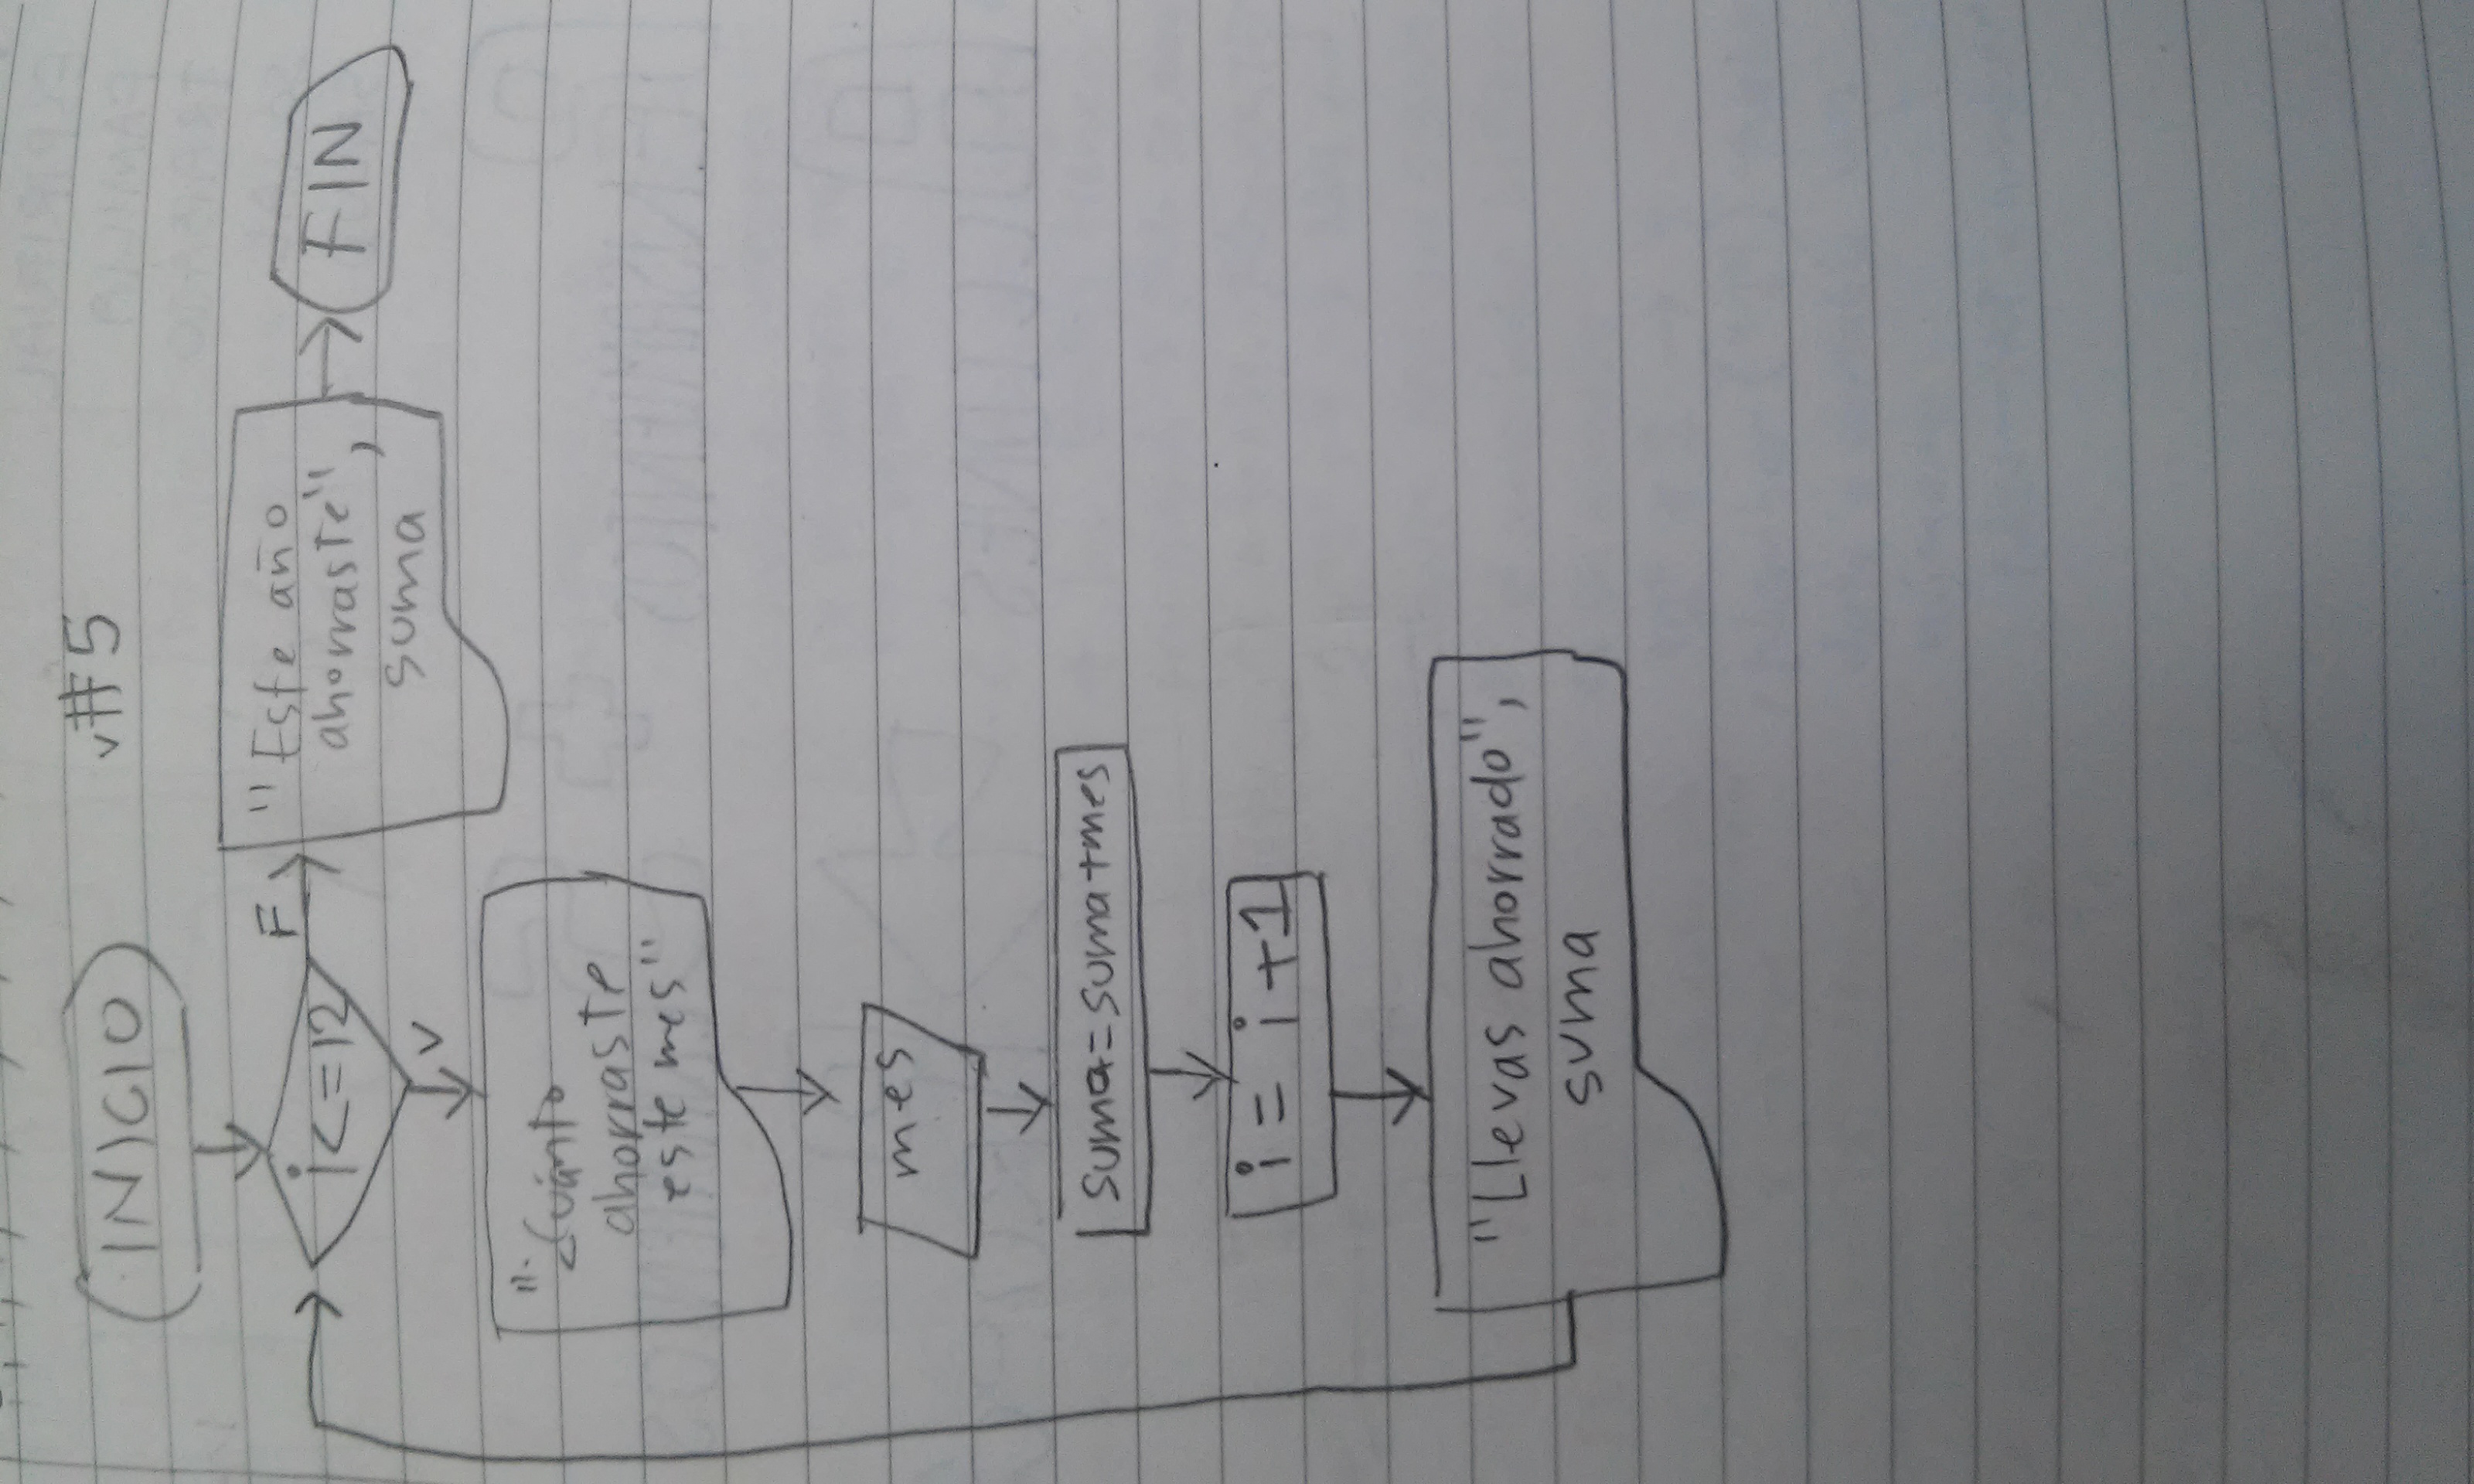 #5
INICIO
i<=12
F
"Este año
ahorraste",
suma
FIN
V
"¿Cuánto
ahorraste
este mes"
mes
suma=suma+mes
i = i+1
"Llevas ahorrado",
suma